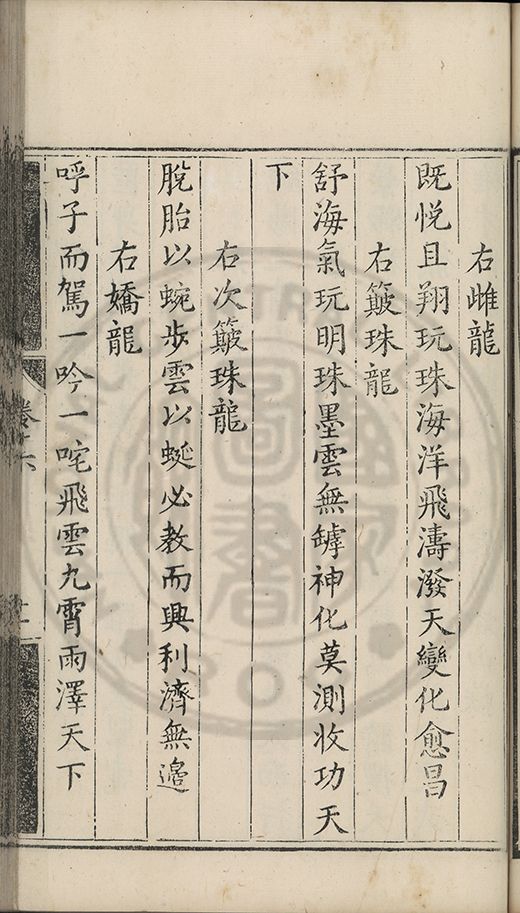 右雌龍
既悦且翔玩珠海洋飛濤潑天變化愈昌
右簸珠龍
舒海氣玩明珠墨雲無罅神化莫測收功天
下
右次簸珠龍
脫胎以蜿步雲以蜒必教而興利濟無邉
右嬌龍
呼子而駕一吟一咤飛雲九霄雨澤天下